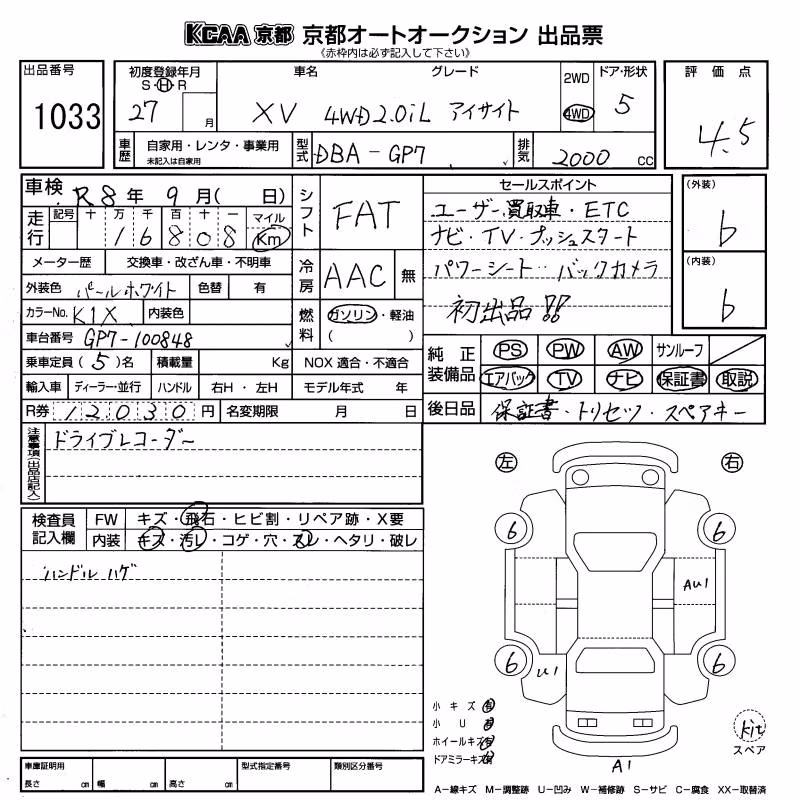 KCAA 京都 京都オートオークション 出品票
《赤枠内は必ず記入して下さい》
出品番号
1033
初度登録年月
S・H・R
27 月
車名
XV
グレード
4WD 2.0iL アイサイト
2WD
4WD
ドア・形状
5
評価点
4.5
車歴
自家用・レンタ・事業用
未記入は自家用
型式
DBA-GP7
排気
2000 CC
車検 R8年 9月( 日)
走行
記号 十 万 千 百 十 一 マイル
1 6 8 0 8 Km
メーター歴 交換車・改ざん車・不明車
外装色 パールホワイト 色替 有
カラーNo. K1X 内装色
車台番号 GP7-100848
乗車定員 (5)名 積載量 Kg
輸入車 ディーラー・並行 ハンドル 右H・左H
R券 12030円 名変期限 月 日
シフト
FAT
冷房
AAC 無
燃料
ガソリン・軽油
( )
NOX 適合・不適合
モデル年式 年
セールスポイント
ユーザー買取車・ETC
ナビ・TV・プッシュスタート
パワーシート・バックカメラ
初出品!!
(外装)
b
(内装)
b
純正装備品
PS PW AW サンルーフ
エアバック TV ナビ 保証書 取説
後日品 保証書・トリセツ・スペアキー
注意事項(出品店記入)
ドライブレコーダー
検査員記入欄
FW キズ・飛石・ヒビ割・リペア跡・X要
内装 キズ・汚レ・コゲ・穴・スレ・ヘタリ・破レ
ハンドル ハゲ
左 右
6 6
AU1
6 6
U1
小キズ 有
小 U 有
ホイールキズ 有
ドアミラーキズ 有
A1
kit
スペア
車庫証明用
長さ cm 幅 cm 高さ cm
型式指定番号
類別区分番号
A-線キズ M-調整跡 U-凹み W-補修跡 S-サビ C-腐食 XX-取替済